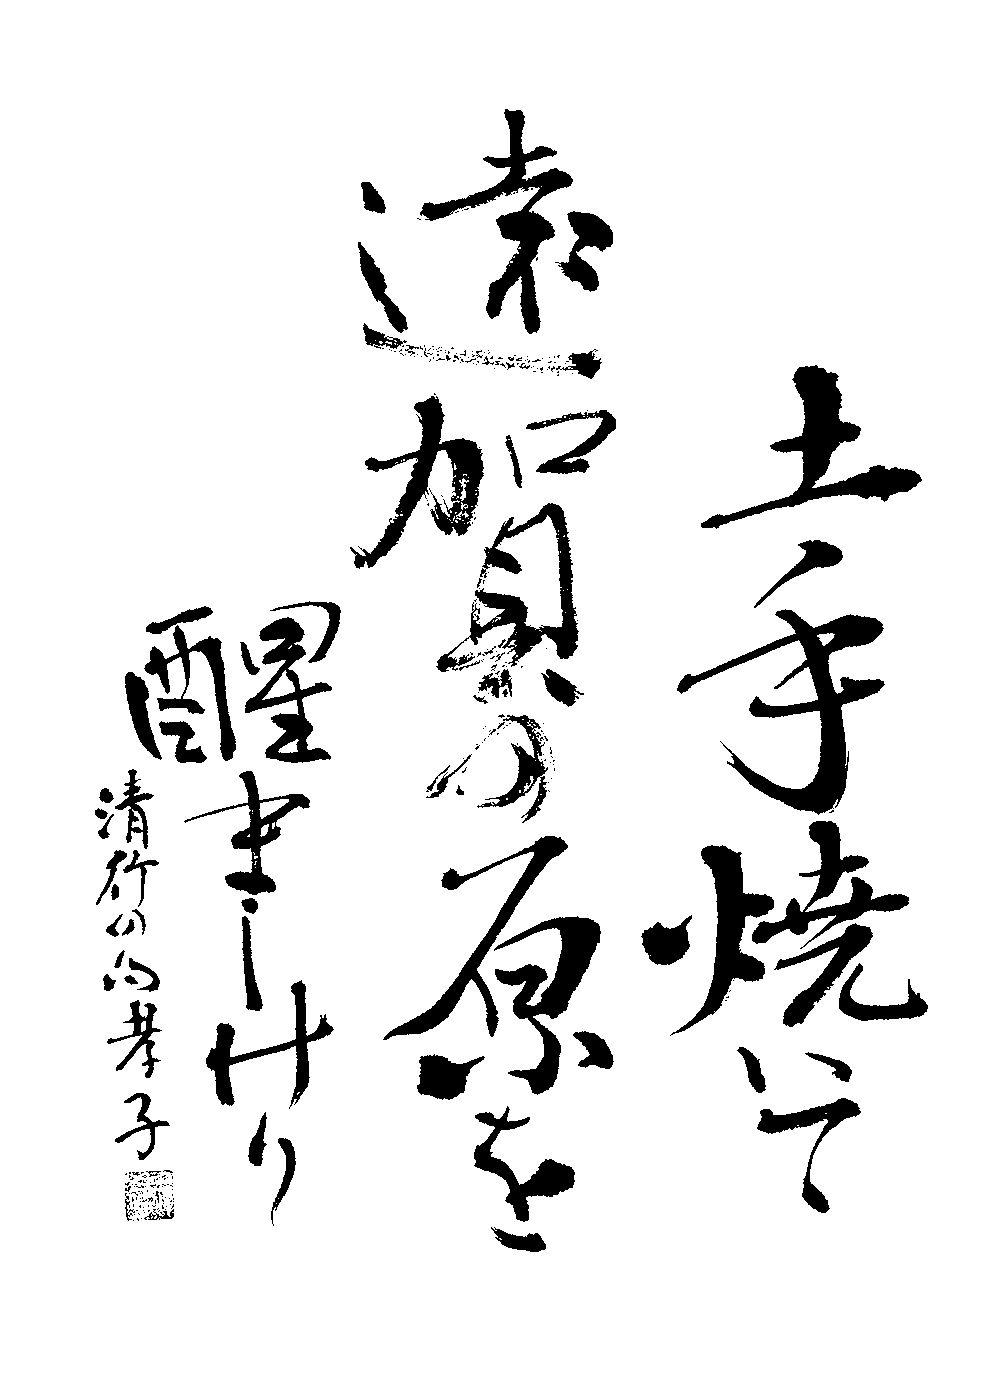 土手焼いて
遠賀の原を
醒ましけり
孝子